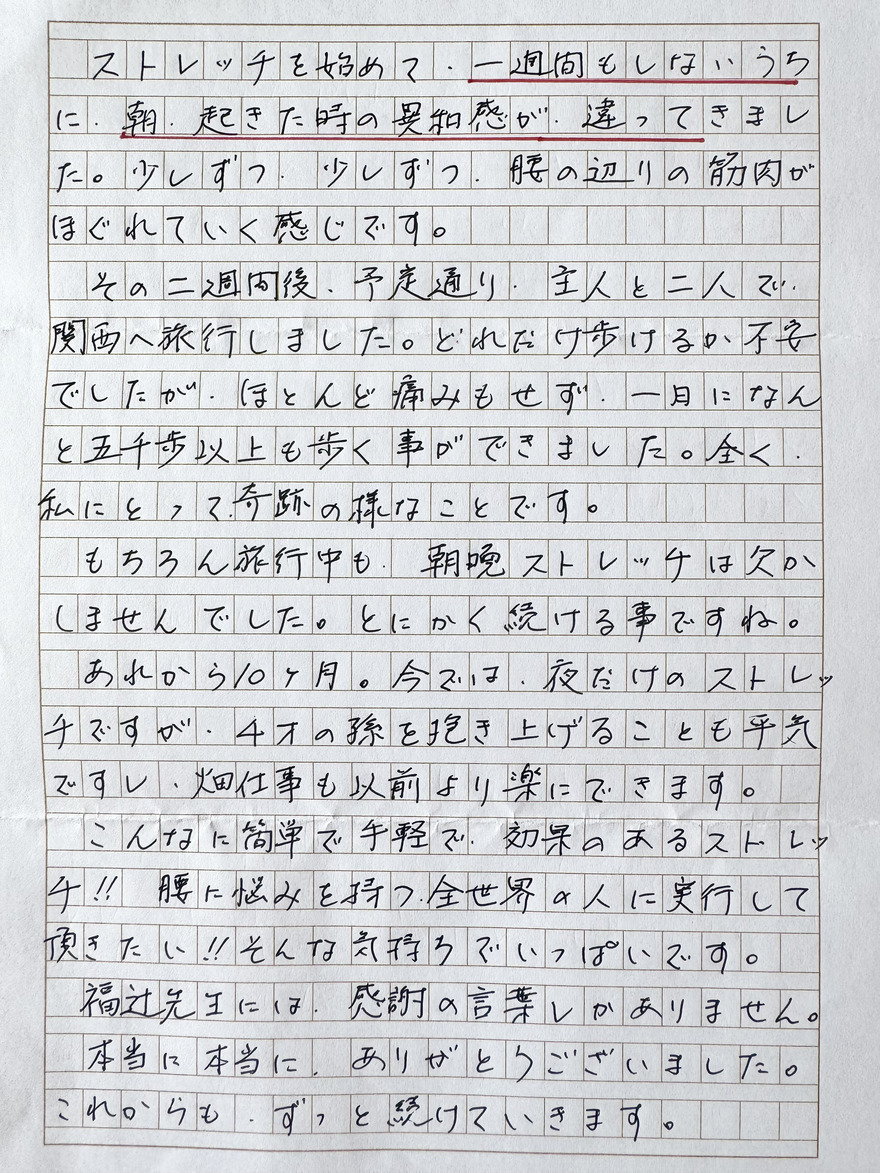 ストレッチを始めて、一週間もしないうち
に、朝、起きた時の異和感が、違ってきまし
た。少しずつ、少しずつ、腰の辺りの筋肉が
ほぐれていく感じです。
その二週間後、予定通り、主人と二人で、
関西へ旅行しました。どれだけ歩けるか不安
でしたが、ほとんど痛みもせず、一日になん
と五千歩以上も歩く事ができました。全く、
私にとって、奇跡の様なことです。
もちろん旅行中も、朝晩ストレッチは欠か
しませんでした。とにかく続ける事ですね。
あれから10ヶ月。今では、夜だけのストレッ
チですが、4才の孫を抱き上げることも平気
ですし、畑仕事も以前より楽にできます。
こんなに簡単で手軽で、効果のあるストレッ
チ!! 腰に悩みを持つ、全世界の人に実行して
頂きたい!!そんな気持ちでいっぱいです。
福辻先生には、感謝の言葉しかありません。
本当に本当に、ありがとうございました。
これからも、ずっと続けていきます。